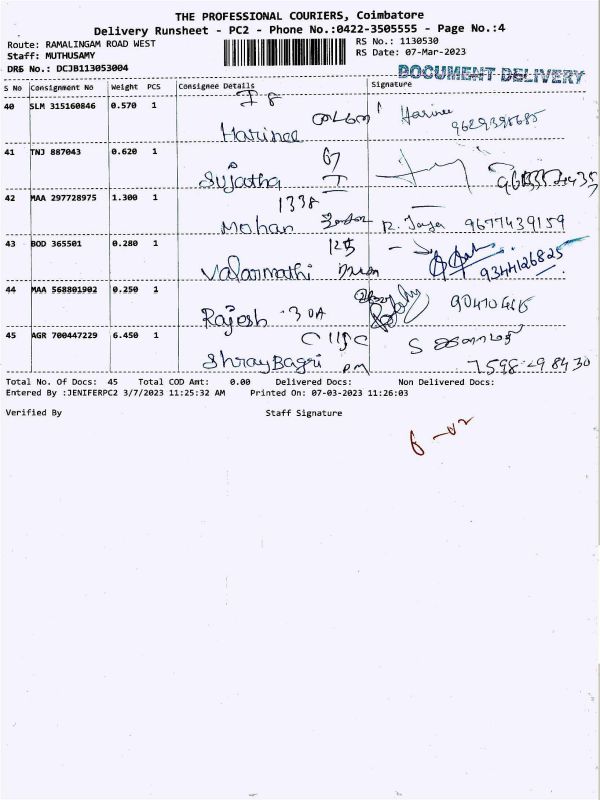 THE PROFESSIONAL COURIERS, Coimbatore
Delivery Runsheet - PC2 - Phone No.:0422-3505555 - Page No.:4
Route: RAMALINGAM ROAD WEST
RS No.: 1130530
Staff: MUTHUSAMY
RS Date: 07-Mar-2023
DRS No.: DCJB113053004
DOCUMENT DELIVERY
S No Consignment No Weight PCS Consignee Details Signature
40 SLM 315160846 0.570 1
Harinee Harinee
41 TNJ 887043 0.620 1 67
Sujatha I
42 MAA 297728975 1.300 1 1338
Mohan R. Jaya 9677439159
43 BOD 365501 0.280 1 125
Valarmathi 9344126825
44 MAA 568801902 0.250 1
Rajesh 30A
45 AGR 700447229 6.450 1
Shray Bagri 7598298430
Total No. Of Docs: 45 Total COD Amt: 0.00 Delivered Docs: Non Delivered Docs:
Entered By :JENIFERPC2 3/7/2023 11:25:32 AM Printed On: 07-03-2023 11:26:03
Verified By Staff Signature